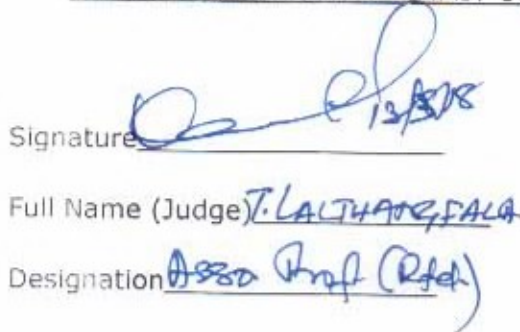 Signature 13/3/18
Full Name (Judge) T. LALTHANGFALA
Designation Asso Prof (Retd)